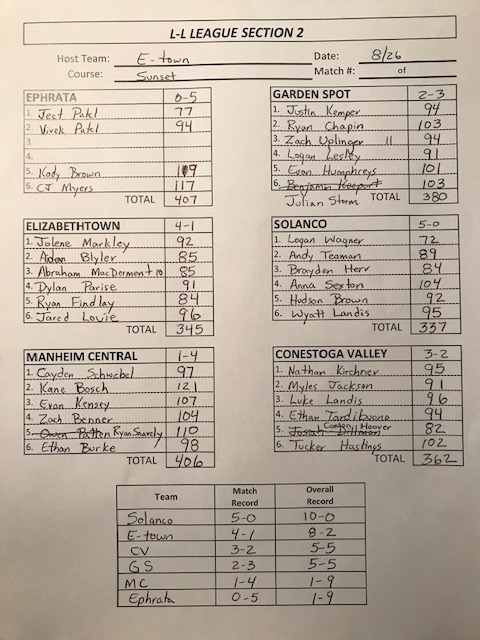 L-L LEAGUE SECTION 2
Host Team: E-town Date: 8/26
Course: Sunset Match #: of
EPHRATA 0-5
1. Jeet Patel 77
2. Vivek Patel 94
3.
4.
5. Kody Brown 119
6. CJ Myers 117
TOTAL 407
GARDEN SPOT 2-3
1. Justin Kemper 94
2. Ryan Chapin 103
3. Zach Uplinger 11 94
4. Logan Lesley 91
5. Evan Humphreys 101
6. Benjamin Keeport 103
Julian Storm TOTAL 380
ELIZABETHTOWN 4-1
1. Jolene Markley 92
2. Aidan Blyler 85
3. Abraham MacDerment 10 85
4. Dylan Parise 91
5. Ryan Findlay 84
6. Jared Louie 96
TOTAL 345
SOLANCO 5-0
1. Logan Wagner 72
2. Andy Teaman 89
3. Brayden Herr 84
4. Anna Sexton 104
5. Hudson Brown 92
6. Wyatt Landis 95
TOTAL 337
MANHEIM CENTRAL 1-4
1. Cayden Schwebel 97
2. Kane Bosch 121
3. Evan Kensey 107
4. Zach Benner 104
5. Owen Patten Ryan Snavely 110
6. Ethan Burke 98
TOTAL 406
CONESTOGA VALLEY 3-2
1. Nathan Kirchner 95
2. Myles Jackson 91
3. Luke Landis 96
4. Ethan Tardibuono 94
5. Josiah Hoover 82
6. Tucker Hastings 102
TOTAL 362
Team Match Record Overall Record
Solanco 5-0 10-0
E-town 4-1 8-2
CV 3-2 5-5
GS 2-3 5-5
MC 1-4 1-9
Ephrata 0-5 1-9